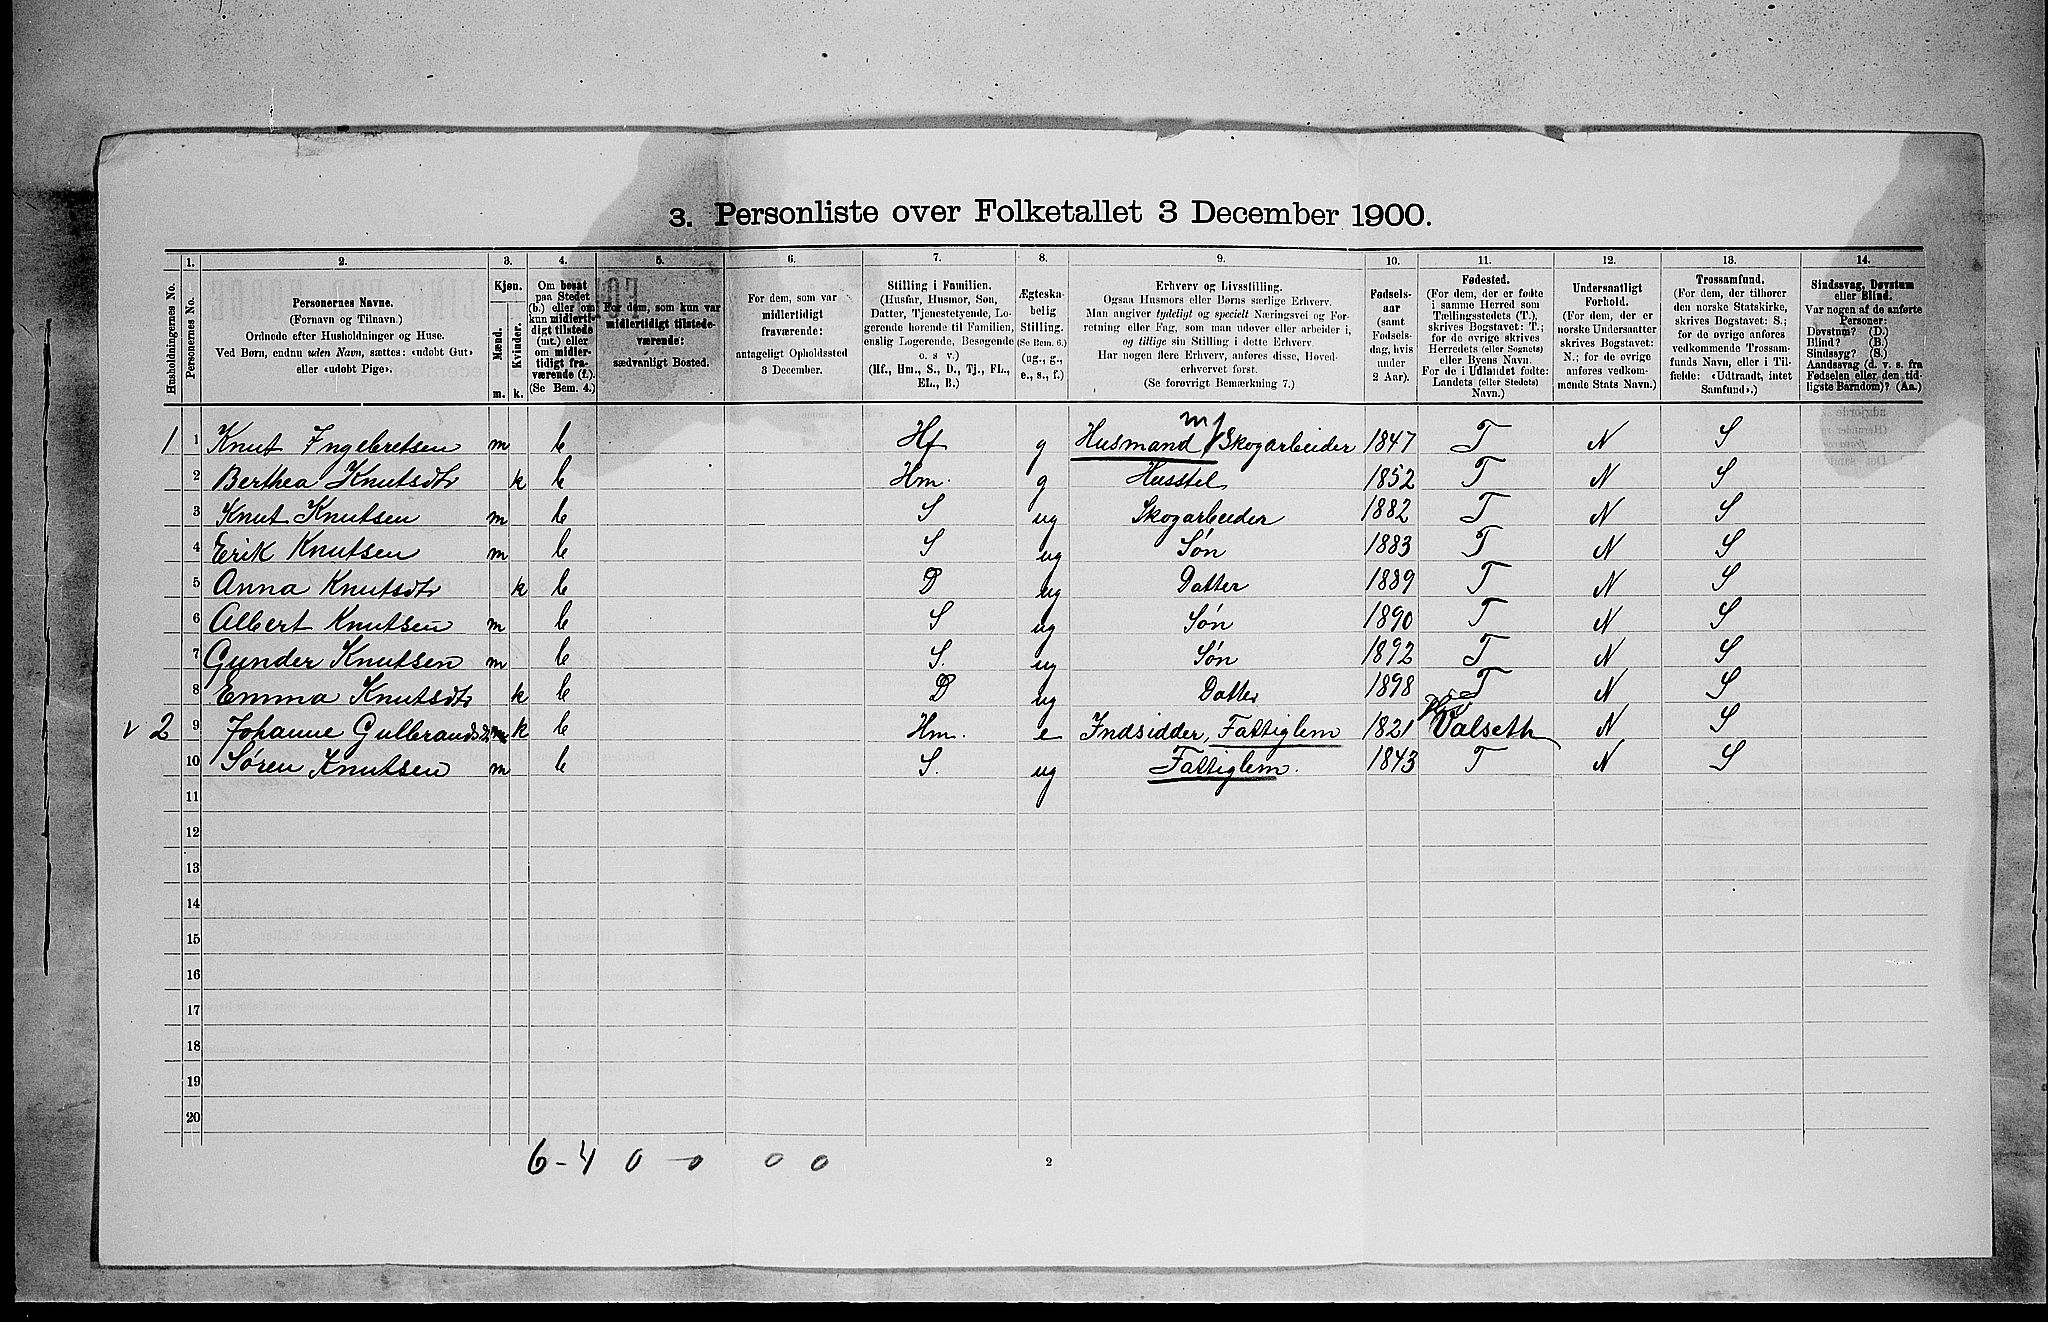 3. Personliste over Folketallet 3 December 1900.
1. 2. 3. 4. 5. 6. 7. 8. 9. 10. 11. 12. 13. 14.
Husholdningernes No.
Personernes No.
Personernes Navne.
(Fornavn og Tilnavn.)
Ordnede efter Husholdninger og Huse.
Ved Børn, endnu uden Navn, sættes: «udøbt Gut»
eller «udøbt Pige».
Kjøn.
Mænd.
Kvinder.
m. k.
Om bosat
paa Stedet
(b.) eller om
kun midlerti-
digt tilstede
(mt.) eller
om midler-
tidigt fra-
værende (f.).
(Se Bem. 4.)
For dem, som kun var
midlertidigt tilstede-
værende:
sædvanligt Bosted.
For dem, som var
midlertidigt
fraværende:
antageligt Opholdssted
3 December.
Stilling i Familien.
(Husfar, Husmor, Søn,
Datter, Tjenestetyende, Lo-
gerende hørende til Familien,
enslig Logerende, Besøgende
o. s v.)
(Hf., Hm., S., D., Tj., FL.,
EL., B.)
Ægteska-
belig
Stilling.
(Se Bem. 6.)
(ug., g.,
e., s., f.)
Erhverv og Livsstilling.
Ogsaa Husmors eller Børns særlige Erhverv.
Man angiver tydeligt og specielt Næringsvei og For-
retning eller Fag, som man udøver eller arbeider i,
og tillige sin Stilling i dette Erhverv.
Har nogen flere Erhverv, anføres disse, Hoved-
erhvervet først.
(Se forøvrigt Bemærkning 7.)
Fødsels-
aar
(samt
Fødsels-
dag, hvis
under
2 Aar).
Fødested.
(For dem, der er fødte
i samme Herred som
Tællingsstedets (T.),
skrives Bogstavet: T.;
for de øvrige skrives
Herredets (eller Sognets)
eller Byens Navn.
For de i Udlandet fødte:
Landets (eller Stedets)
Navn.)
Undersaatligt
Forhold.
(For dem, der er
norske Undersaatter
skrives Bogstavet:
N.; for de øvrige
anføres vedkom-
mende Stats Navn.)
Trossamfund.
(For dem, der tilhører
den norske Statskirke,
skrives Bogstavet: S.;
for de øvrige anføres
vedkommende Trossam-
funds Navn, eller i Til-
fælde: «Udtraadt, intet
Samfund».)
Sindssvag, Døvstum
eller Blind.
Var nogen af de anførte
Personer:
Døvstum? (D.)
Blind? (B.)
Sindssyg? (S.)
Aandssvag (d. v. s. fra
Fødselen eller den tid-
ligste Barndom)? (Aa.)
1 1 Knut Ingebretsen m b Hf g Husmand m/ Skogarbeider 1847 T N S
2 Berthea Knutsdtr k b Hm. g Husstel 1852 T N S
3 Knut Knutsen m b S ug Skogarbeider 1882 T N S
4 Erik Knutsen m b S ug Søn 1883 T N S
5 Anna Knutsdtr k b D ug Datter 1889 T N S
6 Albert Knutsen m b S ug Søn 1890 T N S
7 Gunder Knutsen m b S. ug Søn 1892 T N S
8 Emma Knutsdtr k b D ug Datter 1898 T N S
v 2 9 Johanne Gulbrandsd. k b Hm. e Indsidder, Fattiglem 1821 Valseth N S
10 Søren Knutsen m b S. ug Fattiglem. 1843 T N S
11
12
13
14
15
16
17
18
19
20
6 - 4 0 - 0 0 0
2